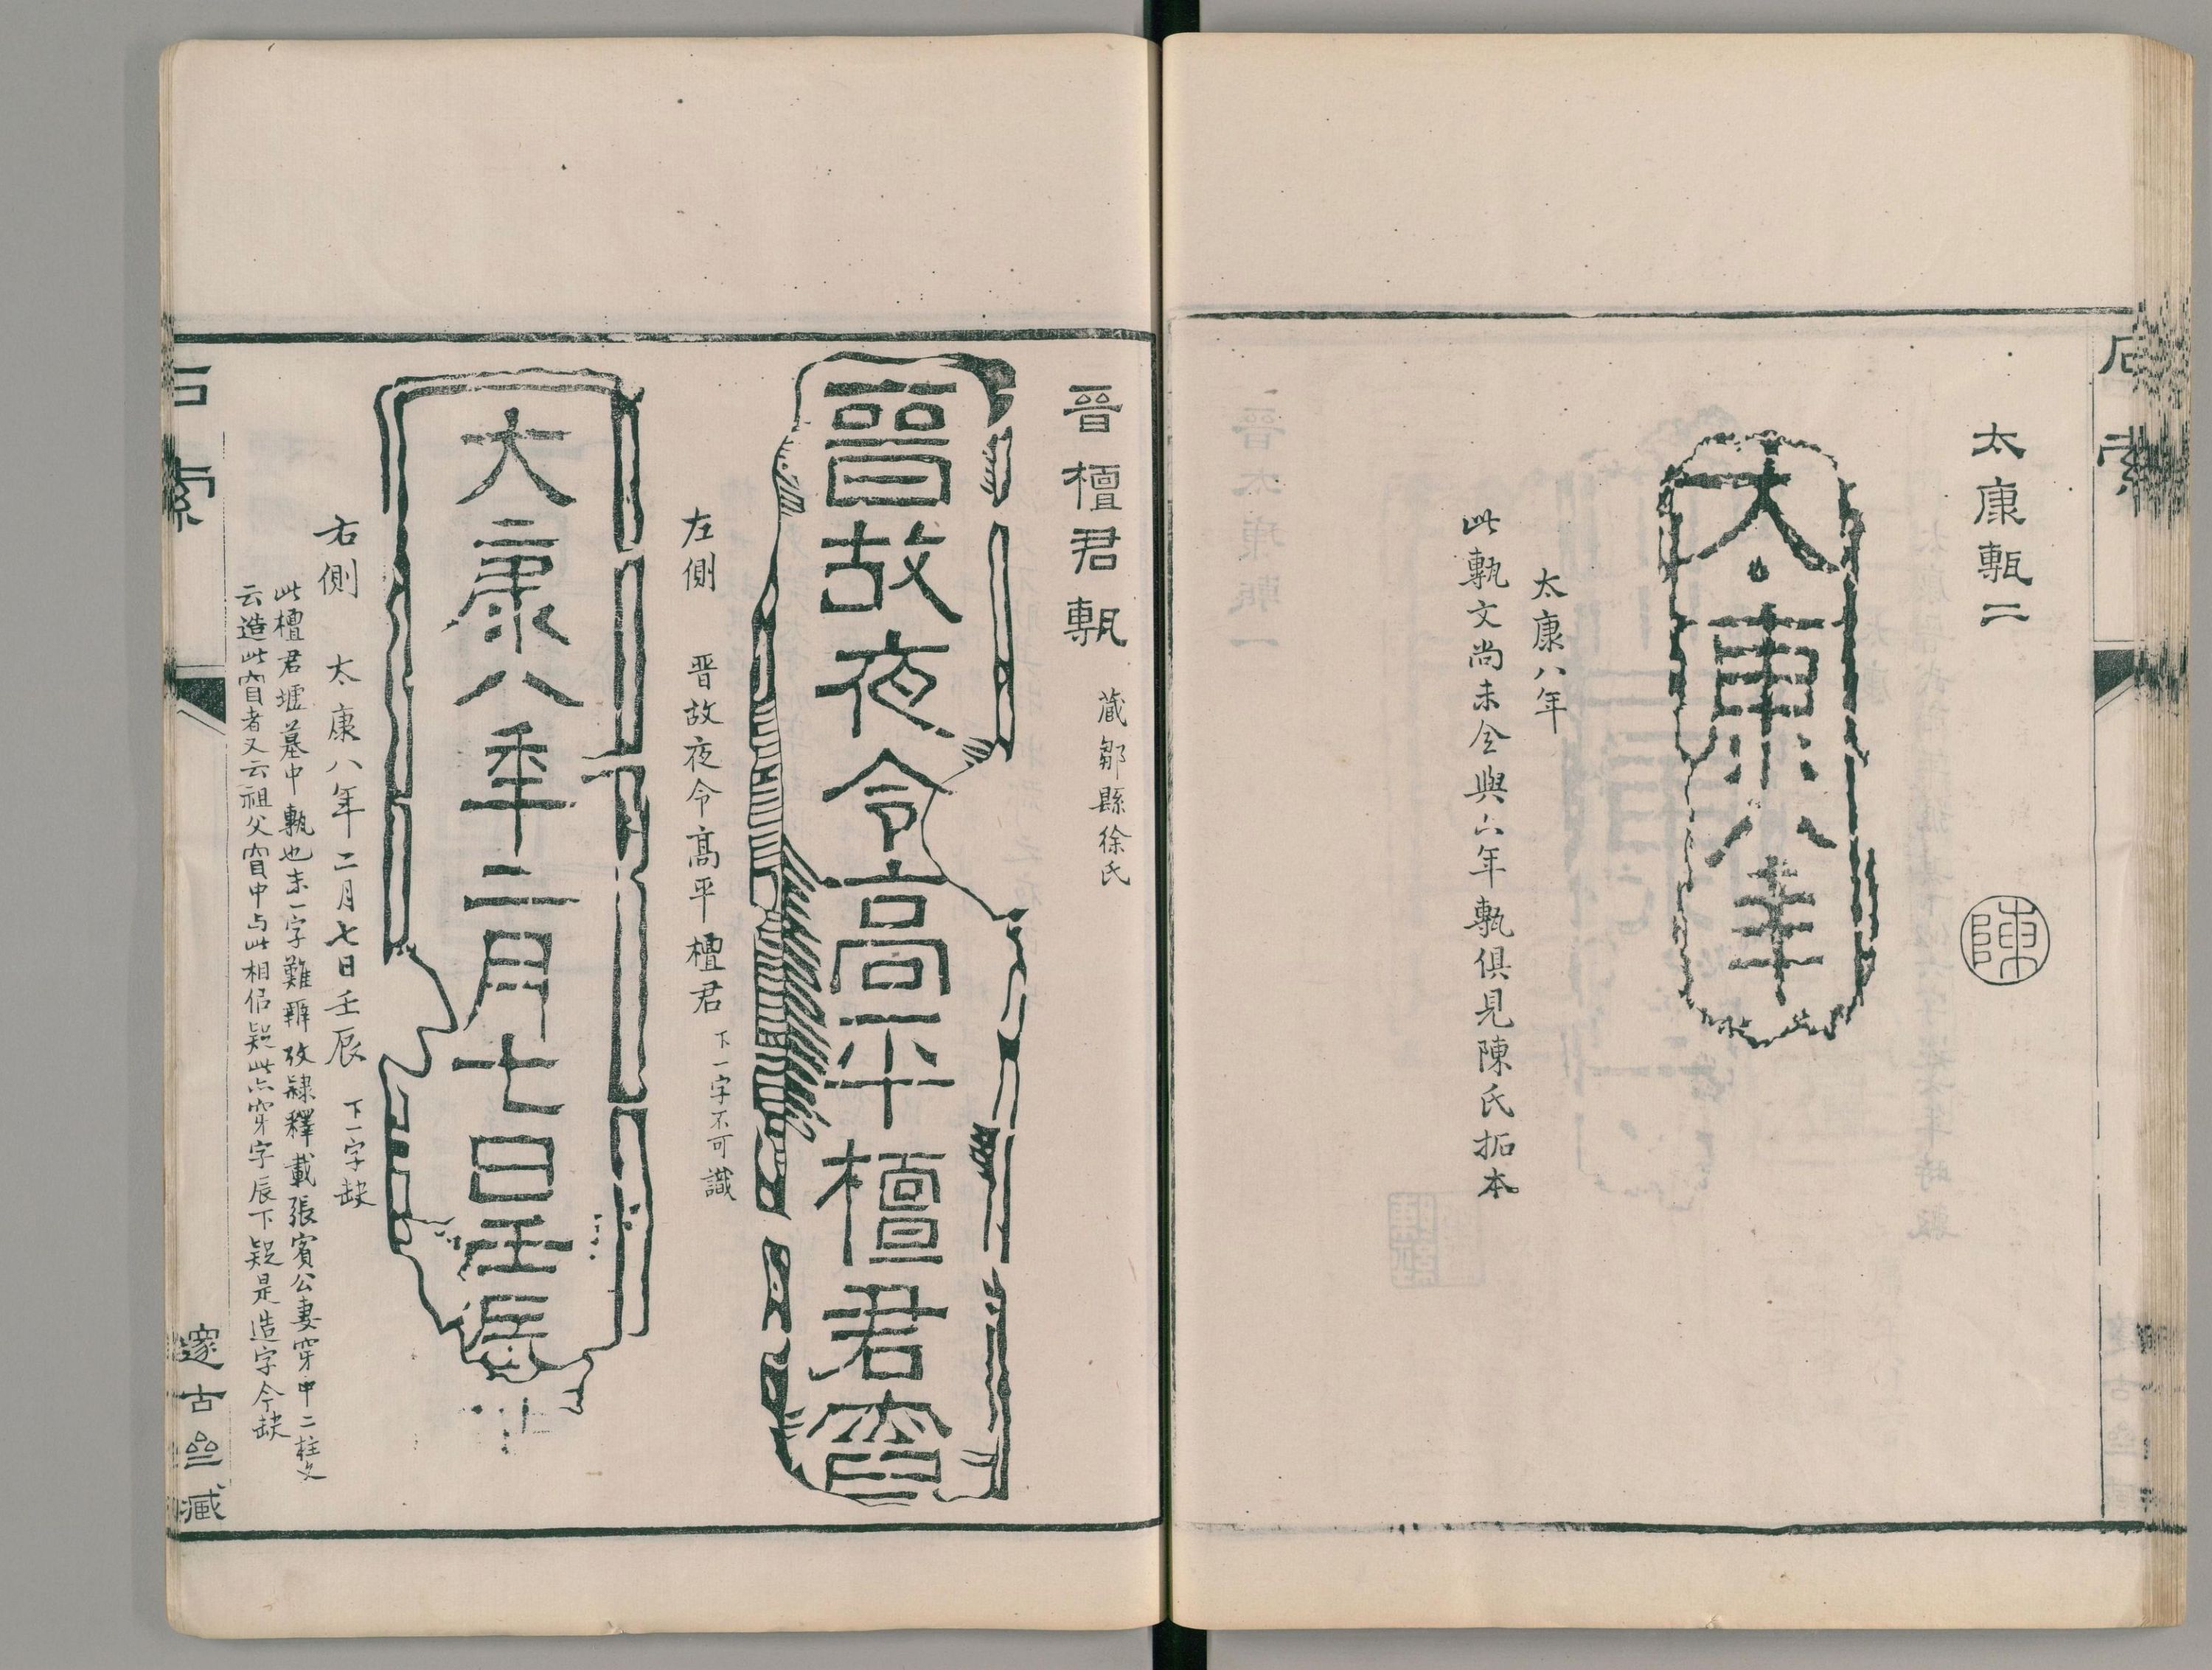 石索
太康甎二
陳
太康八年
太康八年
此甎文尚未全與六年甎俱見陳氏拓本
晉檀君甎
藏鄒縣徐氏
晉故夜令高平檀君
左側 晋故夜令高平檀君 下一字不可識
大康八年二月七日壬辰
右側 太康八年二月七日壬辰 下一字缺
此檀君壙墓中甎也末一字難辨攷隸釋載張賓公妻穿中二柱文
云造此者又云祖父中与此相侣疑此亦穿字辰下疑是造字今缺
石索
邃古亝藏